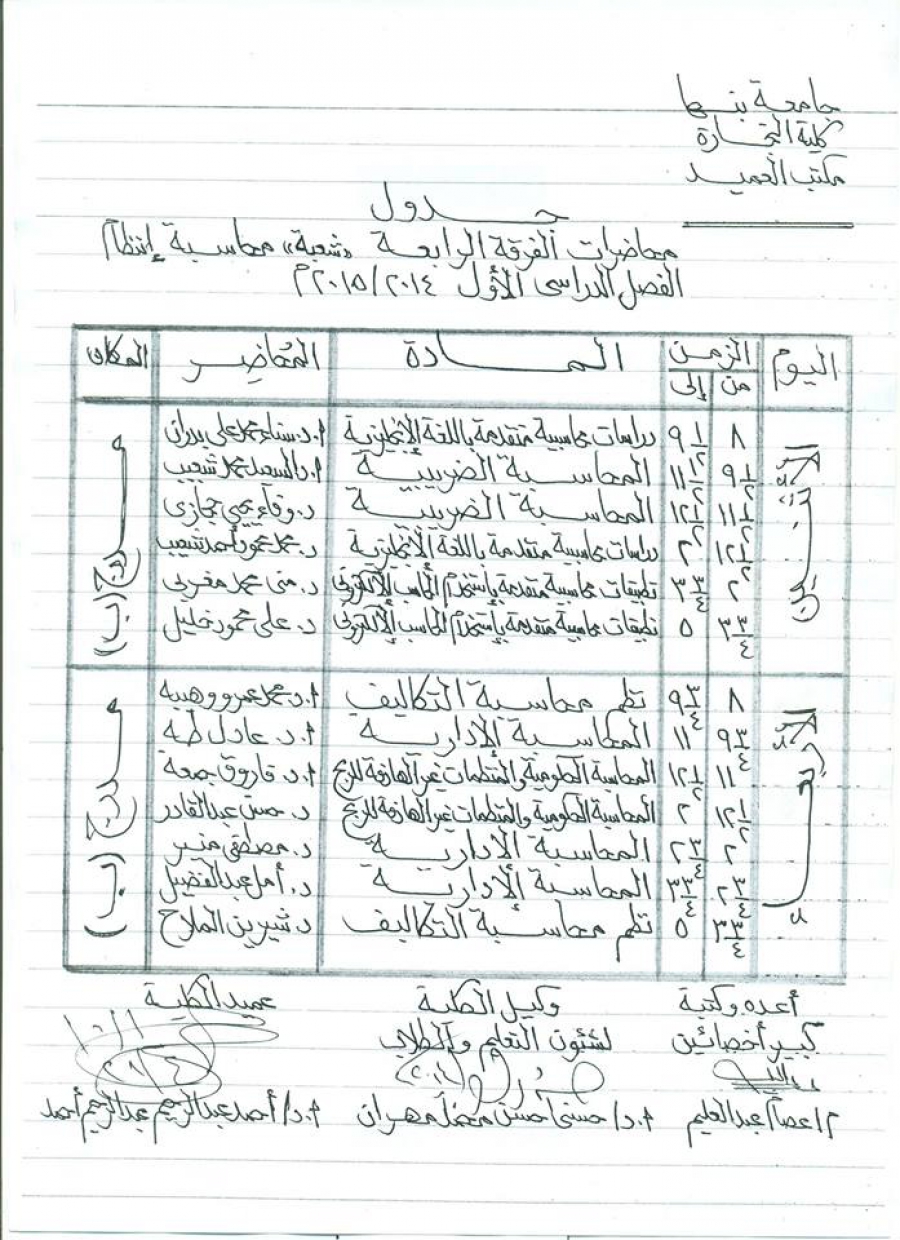 جامعة بنها
كلية التجارة
مكتب العميد
جدول
محاضرات الفرقة الرابعة «شعبة» محاسبة إنتظام
الفصل الدراسى الأول ٢٠١٤/٢٠١٥م
اليوم الزمن المادة المحاضر المكان
من إلى
الأثنين
٨ ٩ ١/٢ دراسات محاسبية متقدمة باللغة الإنجليزية أ.د. سناء محمد على بدران
٩ ١/٢ ١١ ١/٢ المحاسبة الضريبية أ.د. السعيد محمد شعيب
١١ ١/٢ ١٢ ١/٢ المحاسبة الضريبية د. وفاء يحيى حجازى
١٢ ١/٢ ٢ دراسات محاسبية متقدمة باللغة الإنجليزية د. محمد محمود أحمد شعيب
٢ ٣ ٣/٤ تطبيقات محاسبية متقدمة بإستخدام الحاسب الألكترونى د. منى محمد مغربى
٣ ٣/٤ ٥ تطبيقات محاسبية متقدمة بإستخدام الحاسب الألكترونى د. على محمود خليل
مدرج (ب)
الأربعاء
٨ ٩ ٣/٤ نظم محاسبة التكاليف أ.د. محمد عمرو وهيبه
٩ ٣/٤ ١١ المحاسبة الأدارية أ.د. عادل طه
١١ ١٢ ١/٢ المحاسبة الحكومية والمنظمات غير الهادفة للربح أ.د. فاروق جمعة
١٢ ١/٢ ٢ المحاسبة الحكومية والمنظمات غير الهادفة للربح د. حسن عبدالقادر
٢ ٢ ٣/٤ المحاسبة الأدارية د. مصطفى منير
٢ ٣/٤ ٣ ٣/٤ المحاسبة الأدارية د. أمل عبدالفضيل
٣ ٣/٤ ٥ نظم محاسبة التكاليف د. شيرين الملاح
مدرج (ب)
أعده وكتبة وكيل الكلية عميد الكلية
كبير أخصائين لشئون التعليم والطلاب
م/عصام عبدالعليم أ.د/ حسنى حسن مهران أ.د/ أحمد عبدالرحيم عبدالرحيم أحمد